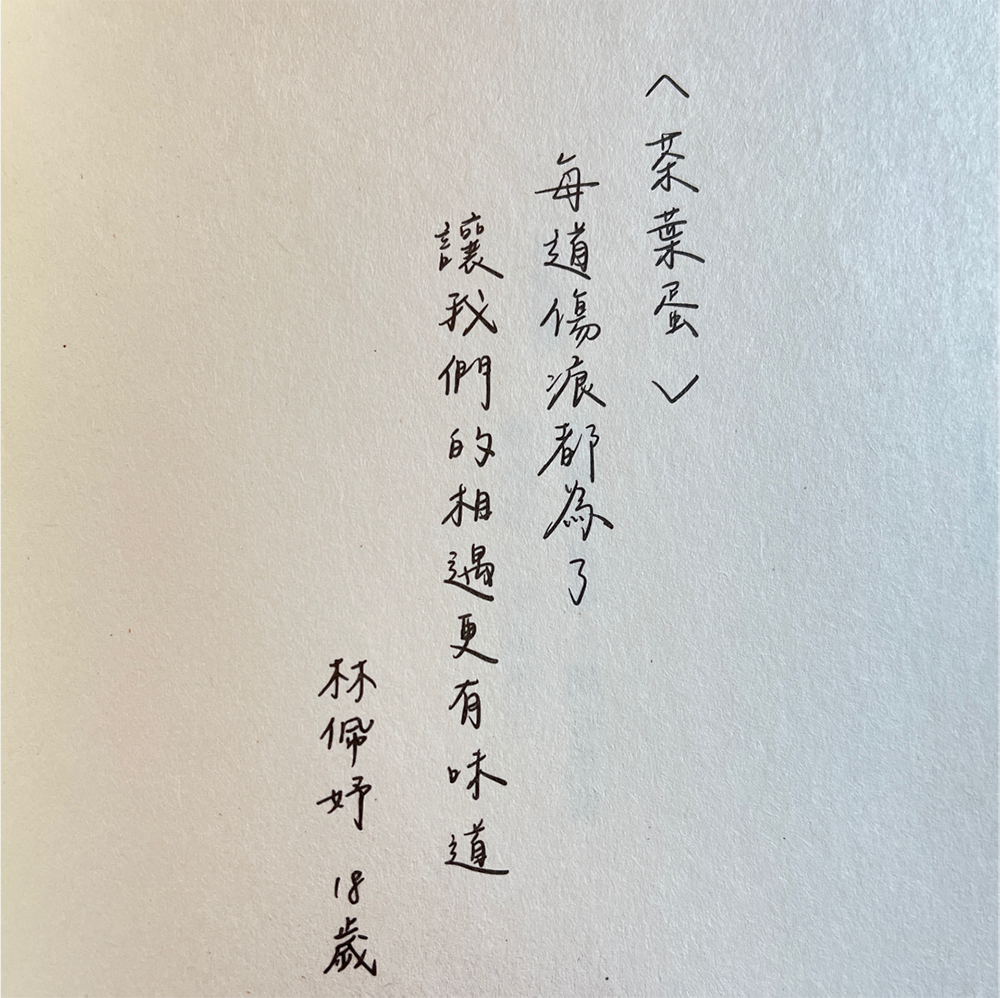 〈茶葉蛋〉
每道傷痕都為了
讓我們的相遇更有味道
林佩妤 18歲